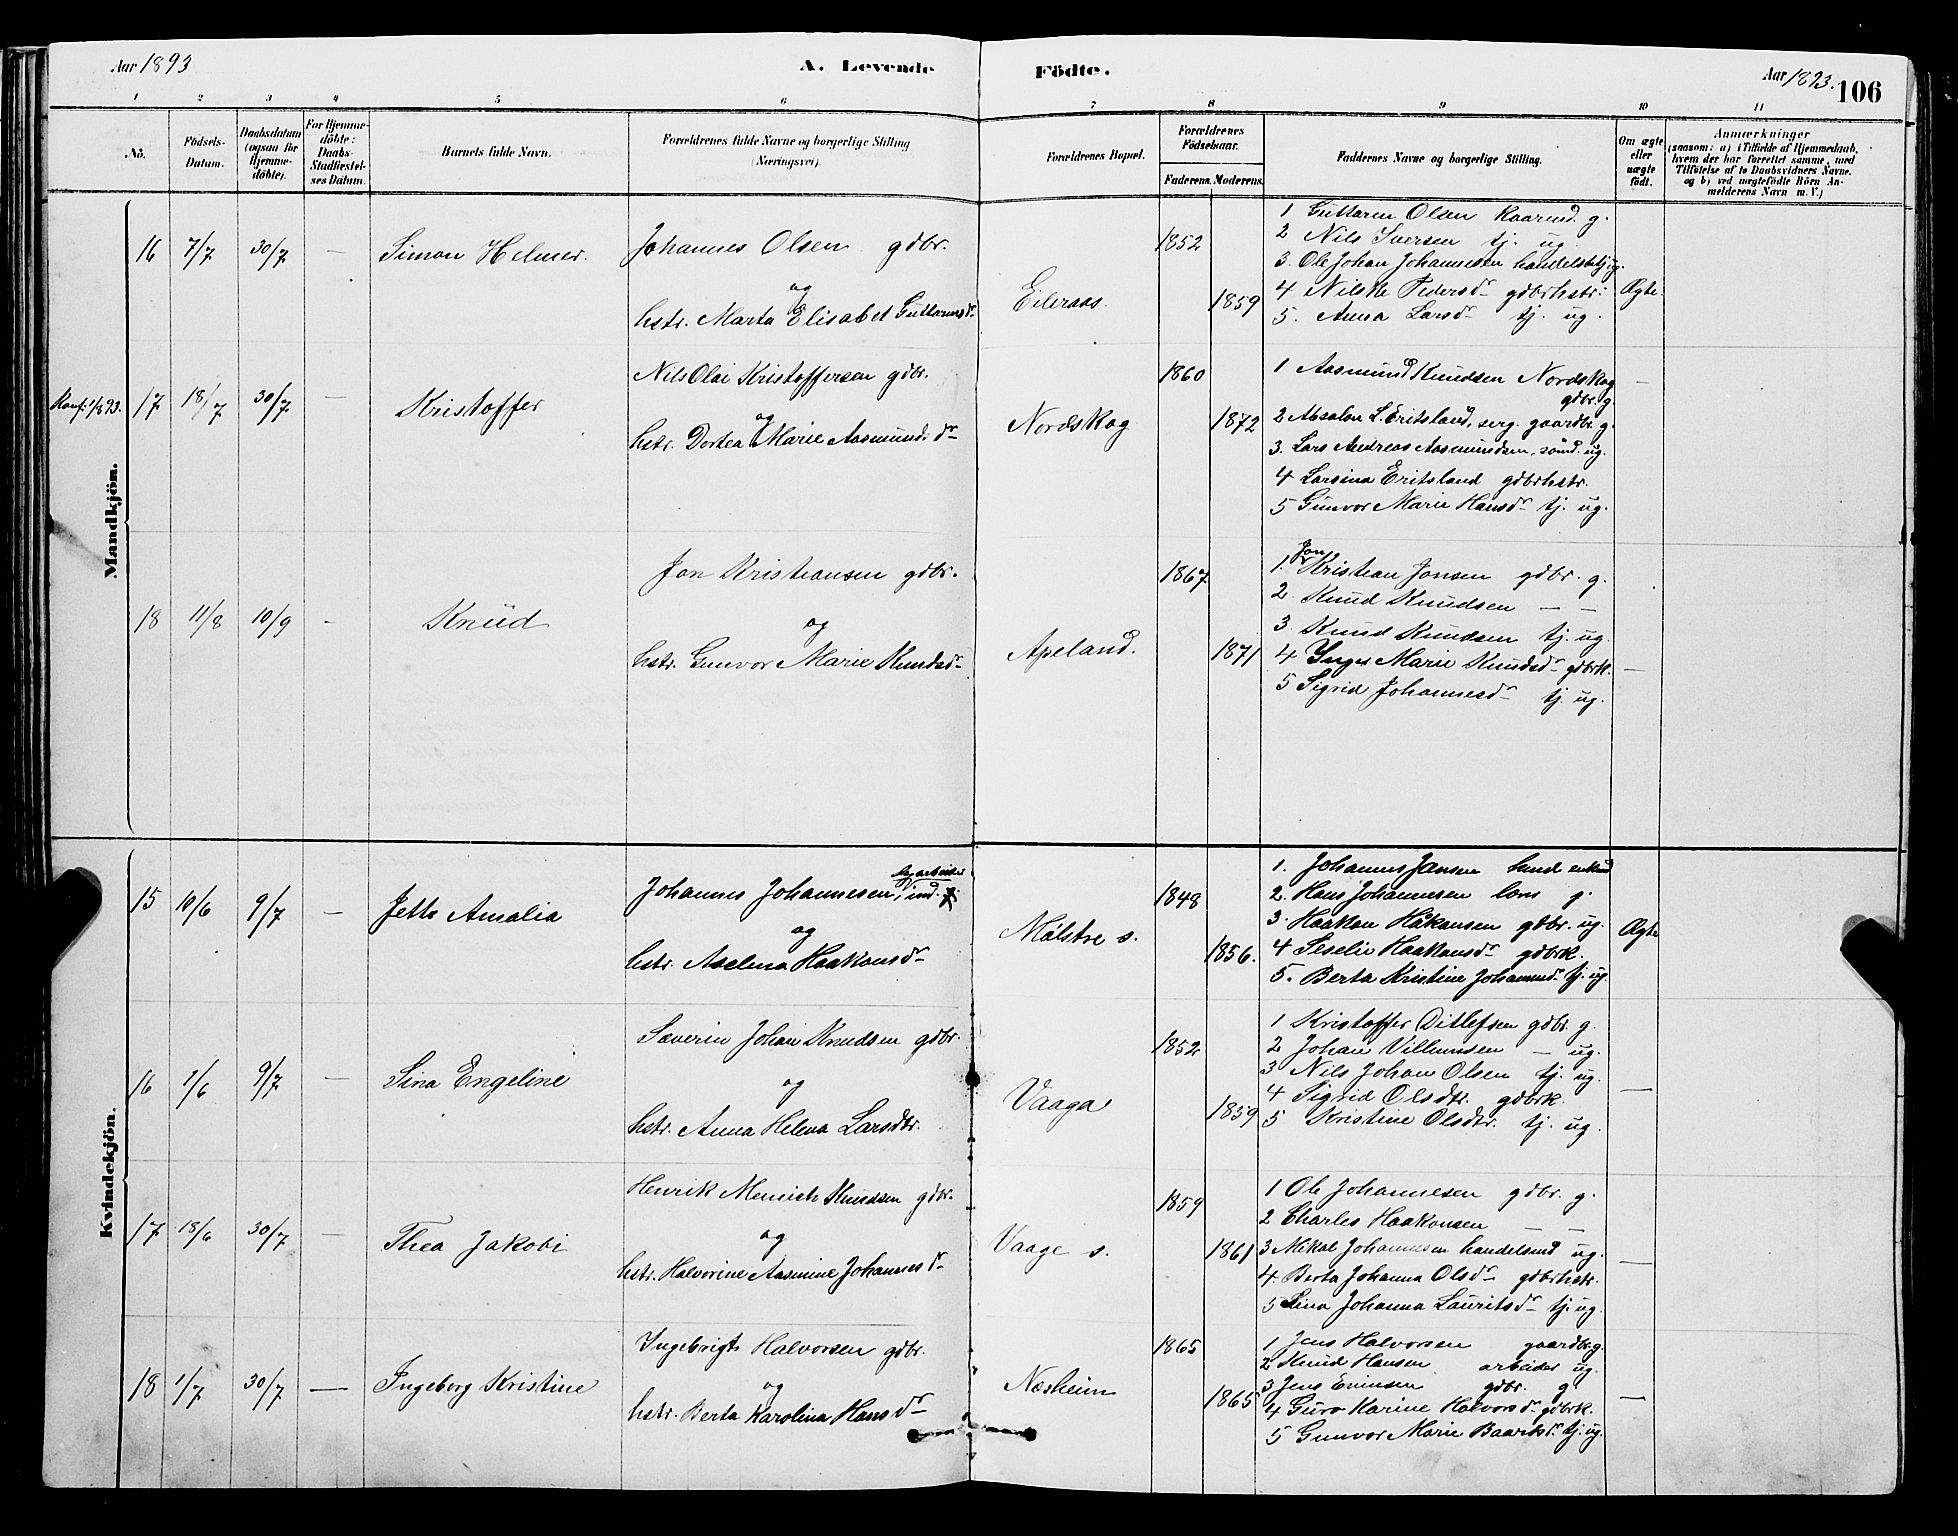 Aar 1893
A. Levende Födte.
Aar 1893.
106
1 2 3 4 5 6 7 8 9 10 11
No.
Födsels-Datum.
Daabsdatum (ogsaa for Hjemme-döbte).
For Hjemme-döbte: Daabs-Stadfæstel-ses Datum.
Barnets fulde Navn.
Forældrenes fulde Navne og borgerlige Stilling (Næringsvei).
Forældrenes Bopæl.
Forældrenes Födselsaar.
Faderens. Moderens.
Faddernes Navne og borgerlige Stilling.
Om ægte eller uægte födt.
Anmærkninger
(saasom: a) i Tilfælde af Hjemmedaab,
hvem der har forrettet samme, med
Tilföielse af to Daabsvidners Navne.
og b) ved uægtefödte Börn An-
melderens Navn m. V.)
Mandkjön.
16 7/7 30/7 — Simon Helmer.
Johannes Olsen gdbr.
og
hstr. Marta Elisabet Guttormsdr
Eileraas
1852
1859
1 Guttorm Olsen kaarmd. g.
2 Nils Iversen tj. ug.
3. Ole Johan Johannesen handelsbetj. ug.
4 Nilske Pedersdr gdbrhstr.
5. Anna Larsdr tj. ug.
Ægte
17 18/7 30/7 — Kristoffer
Nils Olai Kristoffersen gdbr.
og
hstr. Dortea Marie Aasmundsdr
Nordskog
1860
1872
1 Aasmund Knudsen Nordskog
gdbr. g.
2 Absalon L. Eritsland, serg. gaardbr. g.
3. Lars Andreas Aasmundsen, sömd. ug.
4 Larsina Eritsland gdbrhstr.
5 Gunvor Marie Hansdr tj. ug.
—
18 11/8 10/9 - Knüd
Jon Kristiansen gdbr.
og
hstr. Gunvor Marie Knudsdr
Apeland.
1867
1871
1. Jon Kristian Jonsen gdbr. g.
2 Knud Knudsen — —
3 Knud Knudsen tj. ug.
4 Inger Marie Knudsdr gdbrk.
5 Sigrid Johannesdr tj. ug.
—
Kvindekjön.
15 10/6 9/7 — Jette Amalia
Johannes Johannesen, ind.
og
hstr. Aselena Haakonsdr
Mölstre s.
1848
1856.
1. Johannes Jansen
2. Hans Johannesen lons g.
3. Haakon Håkonsen gdbr. ug.
4 Seselie Haakonsdr gdbrk.
5. Berta Kristine Johannesdr tj. ug.
Ægte
16 1/6 9/7 — Sina Engeline
Severin Johan Knudsen gdbr.
og
hstr. Anna Helena Larsdtr.
Vaaga
1852
1859
1 Kristoffer Ditlefsen gdbr. g.
2 Johan Villumsen — ug.
3 Nils Johan Olsen tj. ug.
4 Sigrid Olsdtr. gdbrk.
5 Kristine Olsdtr. tj. ug.
—
17 18/6 30/7 — Thea Jakobi
Henrik Knudsen gdbr.
og
hstr. Halvorine Aasmine Johannesdr
Vaage s.
1859
1861
1 Ole Johannesen gdbr. g.
2 Charles Haakonsen — —
3 Mikal Johannesen handelsmd ug.
4. Berta Johanna Olsdr gdbrhstr.
5 Lina Johanna Lauritsdr tj. ug.
—
18 1/7 30/7 — Ingeborg Kristine
Ingebrigt Halvorsen gdbr.
og
hstr. Berta Karolina Hansdr
Næsheim
1865
1865
1 Jens Halvorsen gaardbr. g.
2 Knud Hansen arbeider ug.
3 Jens gdbr. g
4 Guro Karine Halvorsdr gdbrk.
5 Gunvor Marie Baardsdr tj. ug.
—